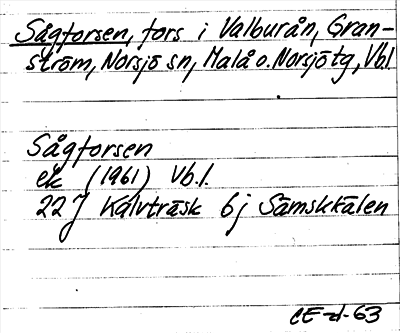 Sågforsen, fors i Valburån, Gran-
ström, Norsjö sn, Malå o. Norsjö tg, Vbl
Sågforsen
ek (1961) Vb.l.
22J Kalvträsk 6j Sämskkälen
CE-d-63